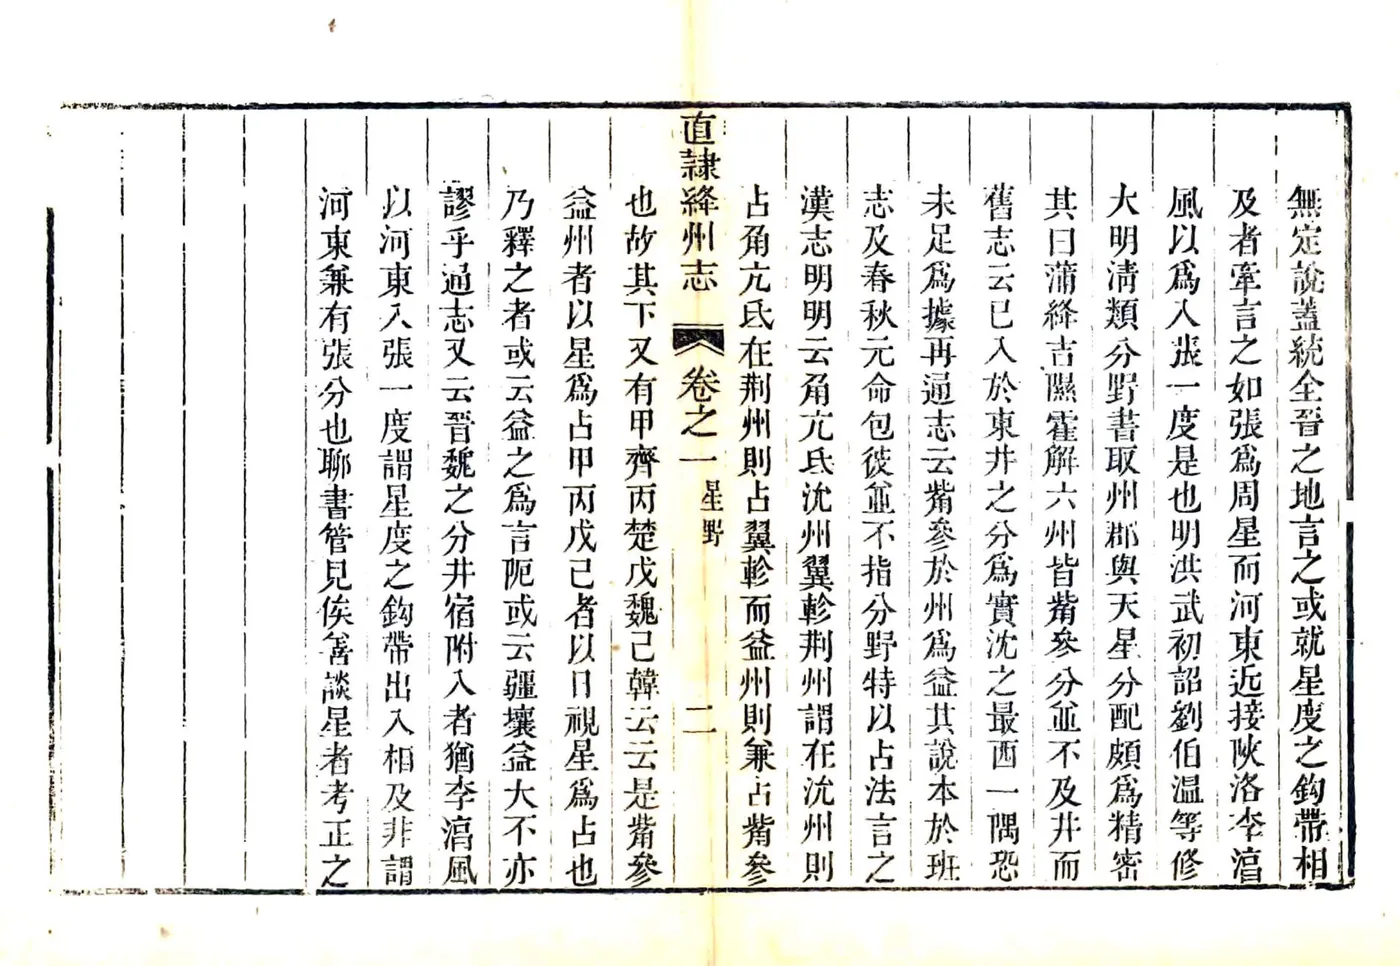 無定說蓋統全晉之地言之或就星度之鈎帶相
及者牽言之如張爲周星而河東近接陜洛李淳
風以爲入張一度是也明洪武初詔劉伯溫等修
大明淸類分野書取州郡與天星分配頗爲精密
其曰蒲絳吉隰霍解六州皆觜參分並不及井而
舊志云已入於東井之分爲實沈之最西一隅恐
未足爲據再通志云觜參於州爲益其說本於班
志及春秋元命包彼並不指分野特以占法言之
漢志明明云角亢氐沇州翼軫荆州謂在沇州則
占角亢氐在荆州則占翼軫而益州則兼占觜參
直隷絳州志
卷之一
星野
二
也故其下又有甲齊丙楚戊魏己韓云云是觜參
益州者以星爲占甲丙戊己者以日視星爲占也
乃釋之者或云益之爲言阨或云疆壤益大不亦
謬乎通志又云晉魏之分井宿附入者猶李淳風
以河東入張一度謂星度之鈎帶出入相及非謂
河東兼有張分也聊書管見俟善談星者考正之